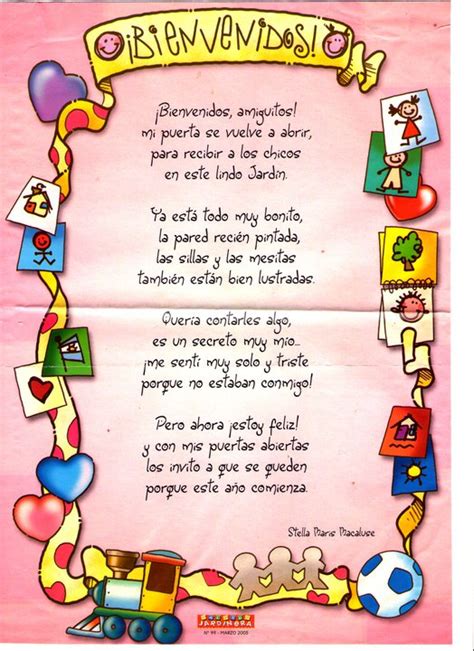 ¡BIENVENIDOS!
¡Bienvenidos, amiguitos!
mi puerta se vuelve a abrir,
para recibir a los chicos
en este lindo Jardín.
Ya está todo muy bonito,
la pared recién pintada,
las sillas y las mesitas
también están bien lustradas.
Quería contarles algo,
es un secreto muy mío...
¡me sentí muy solo y triste
porque no estaban conmigo!
Pero ahora ¡estoy feliz!
y con mis puertas abiertas
los invito a que se queden
porque este año comienza.
Stella Maris Macaluse
JARDINERA
Nº 99 - MARZO 2005